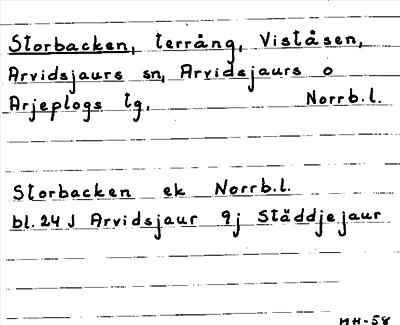 Storbacken, terräng, Viståsen,
Arvidsjaurs sn, Arvidsjaurs o
Arjeplogs tg, Norrb.l.
Storbacken ek Norrb.l.
bl. 24 J Arvidsjaur 9j Ståddjejaur
MH-58